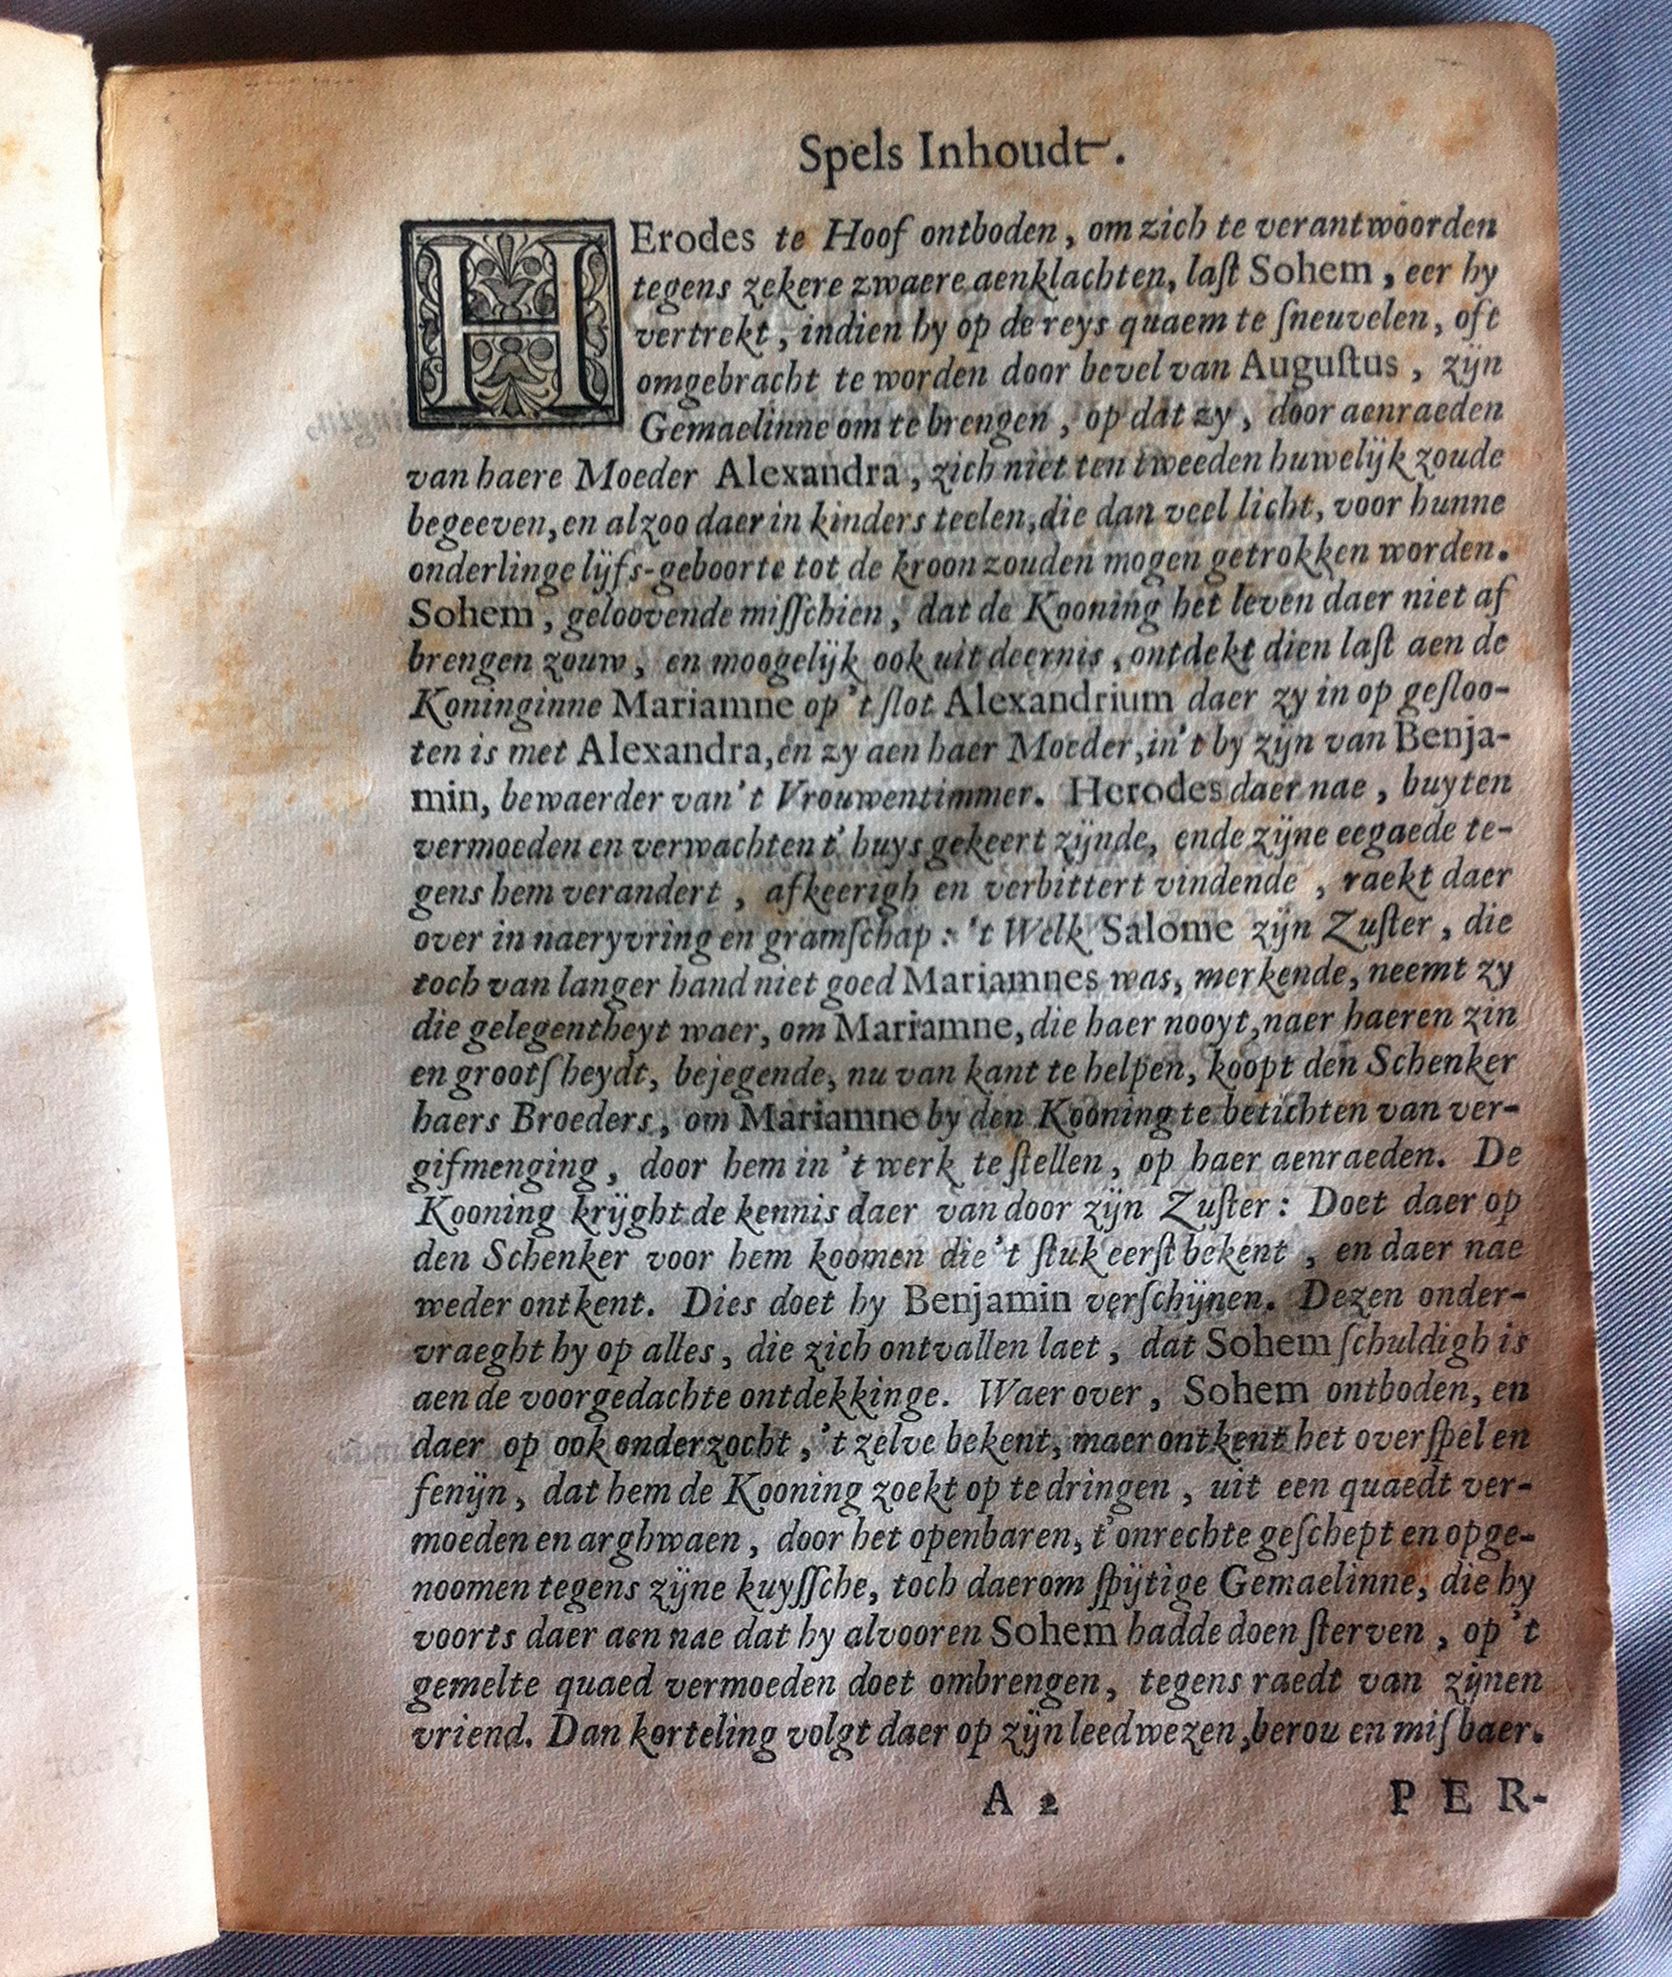 Spels Inhoudt.
HErodes te Hoof ontboden, om zich te verantwoorden
tegens zekere zwaere aenklachten, laſt Sohem, eer hy
vertrekt, indien hy op de reys quaem te ſneuvelen, oft
omgebracht te worden door bevel van Auguſtus, zijn
Gemaelinne om te brengen, op dat zy, door aenraeden
van haere Moeder Alexandra, zich niet ten tweeden huwelijk zoude
begeeven, en alzoo daer in kinders teelen, die dan veel licht, voor hunne
onderlinge lijfs-geboorte tot de kroon zouden mogen getrokken worden.
Sohem, geloovende miſſchien, dat de Kooning het leven daer niet af
brengen zouw, en moogelijk ook uit deernis, ontdekt dien laſt aen de
Koninginne Mariamne op 't ſlot Alexandrium daer zy in op geſloo-
ten is met Alexandra, en zy aen haer Moeder, in 't by zijn van Benja-
min, bewaerder van 't Vrouwentimmer. Herodes daer nae, buyten
vermoeden en verwachten t' huys gekeert zijnde, ende zijne eegaede te-
gens hem verandert, afkeerigh en verbittert vindende, raekt daer
over in naeryvring en gramſchap: 't Welk Salome zijn Zuſter, die
toch van langer hand niet goed Mariamnes was, merkende, neemt zy
die gelegentheyt waer, om Mariamne, die haer nooyt, naer haeren zin
en grootſheydt, bejegende, nu van kant te helpen, koopt den Schenker
haers Broeders, om Mariamne by den Kooning te betichten van ver-
gifmenging, door hem in 't werk te ſtellen, op haer aenraeden. De
Kooning krijght de kennis daer van door zijn Zuſter: Doet daer op
den Schenker voor hem koomen die 't ſtuk eerſt bekent, en daer nae
weder ontkent. Dies doet hy Benjamin verſchijnen. Dezen onder-
vraeght hy op alles, die zich ontvallen laet, dat Sohem ſchuldigh is
aen de voorgedachte ontdekkinge. Waer over, Sohem ontboden, en
daer op ook onderzocht, 't zelve bekent, maer ontkent het overſpel en
fenijn, dat hem de Kooning zoekt op te dringen, uit een quaedt ver-
moeden en arghwaen, door het openbaren, t' onrechte geſchept en opge-
noomen tegens zijne kuyſſche, toch daerom ſpijtige Gemaelinne, die hy
voorts daer aen nae dat hy alvooren Sohem hadde doen ſterven, op 't
gemelte quaed vermoeden doet ombrengen, tegens raedt van zijnen
vriend. Dan korteling volgt daer op zijn leedwezen, berou en miſbaer.
A 2 PER-